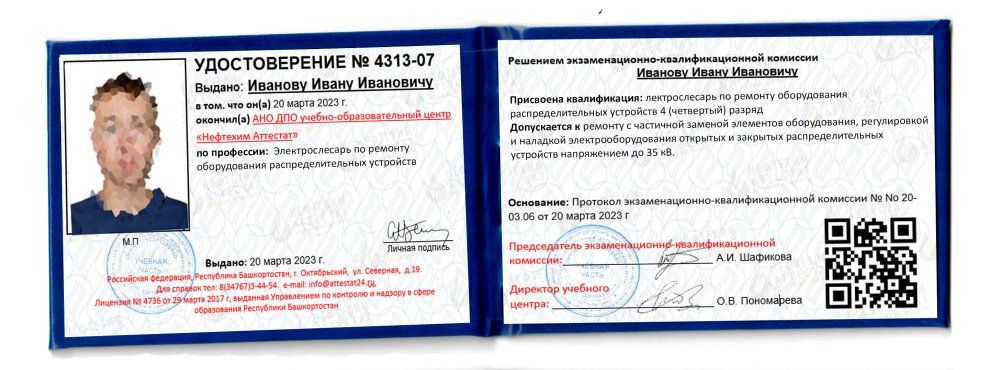 УДОСТОВЕРЕНИЕ № 4313-07
Выдано: Иванову Ивану Ивановичу
в том. что он(а) 20 марта 2023 г.
окончил(а) АНО ДПО учебно-образовательный центр
«Нефтехим Аттестат»
по профессии: Электрослесарь по ремонту
оборудования распределительных устройств
Личная подпись
М.П
УЧЕБНАЯ
ЧАСТЬ
Выдано: 20 марта 2023 г.
Российская федерация, Республика Башкортостан, г. Октябрьский, ул. Северная, д.19.
Для справок тел: 8(34767)3-44-54. e-mail: info@attestat24.ru,
Лицензия № 4736 от 29 марта 2017 г, выданная Управлением по контролю и надзору в сфере
образования Республики Башкортостан
Решением экзаменационно-квалификационной комиссии
Иванову Ивану Ивановичу
Присвоена квалификация: лектрослесарь по ремонту оборудования
распределительных устройств 4 (четвертый) разряд
Допускается к ремонту с частичной заменой элементов оборудования, регулировкой
и наладкой электрооборудования открытых и закрытых распределительных
устройств напряжением до 35 кВ.
Основание: Протокол экзаменационно-квалификационной комиссии № No 20-
03.06 от 20 марта 2023 г
Председатель экзаменационно-квалификационной
комиссии: А.И. Шафикова
УЧЕБНАЯ
ЧАСТЬ
Директор учебного
центра: О.В. Пономарева